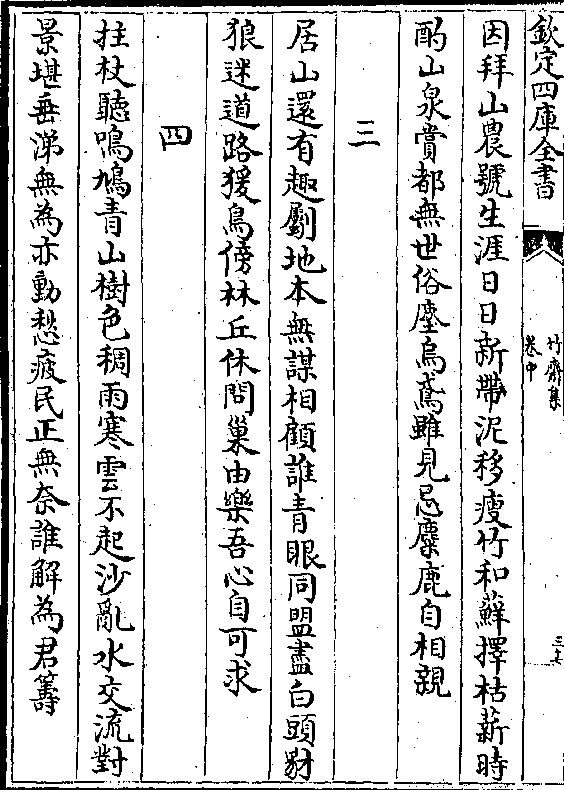 欽定四庫全書
竹齋集
卷中
三七
因拜山農號生涯日日新帶泥移瘦竹和蘚擇枯薪時
酌山泉賞都無世俗塵烏鳶雖見忌麋鹿自相親
三
居山還有趣劚地本無謀相顧誰青眼同盟盡白頭豺
狼迷道路猨鳥傍林丘休問巢由樂吾心自可求
四
拄杖聽鳴鳩青山樹色稠雨寒雲不起沙亂水交流對
景堪垂涕無為亦動愁疲民正無奈誰解為君籌